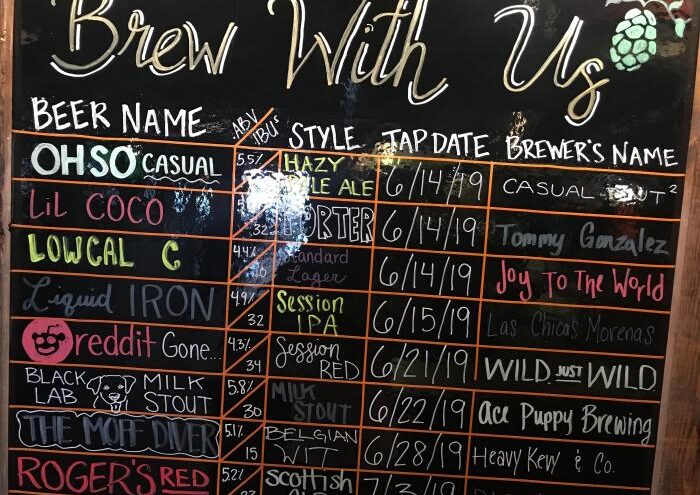 Brew With Us
BEER NAME ABV IBU's STYLE TAP DATE BREWER'S NAME
OHSO CASUAL 5.5% HAZY ALE 6/14/19 CASUAL
LiL COCO 32 PORTER 6/14/19 Tommy Gonzalez
LOWCAL C 4.4% Standard Lager 6/14/19 Joy To The World
Liquid IRON 4.9% 32 Session IPA 6/15/19 Las Chicas Morenas
reddit Gone... 4.3% 34 Session RED 6/21/19 WILD JUST WILD
BLACK LAB MILK STOUT 5.8% 30 MILK STOUT 6/22/19 Ace Puppy Brewing
THE MOFF DIVER 5.1% 15 BELGIAN WIT 6/28/19 Heavy Kew & Co.
ROGER'S RED 5.2% Scottish 7/3/19